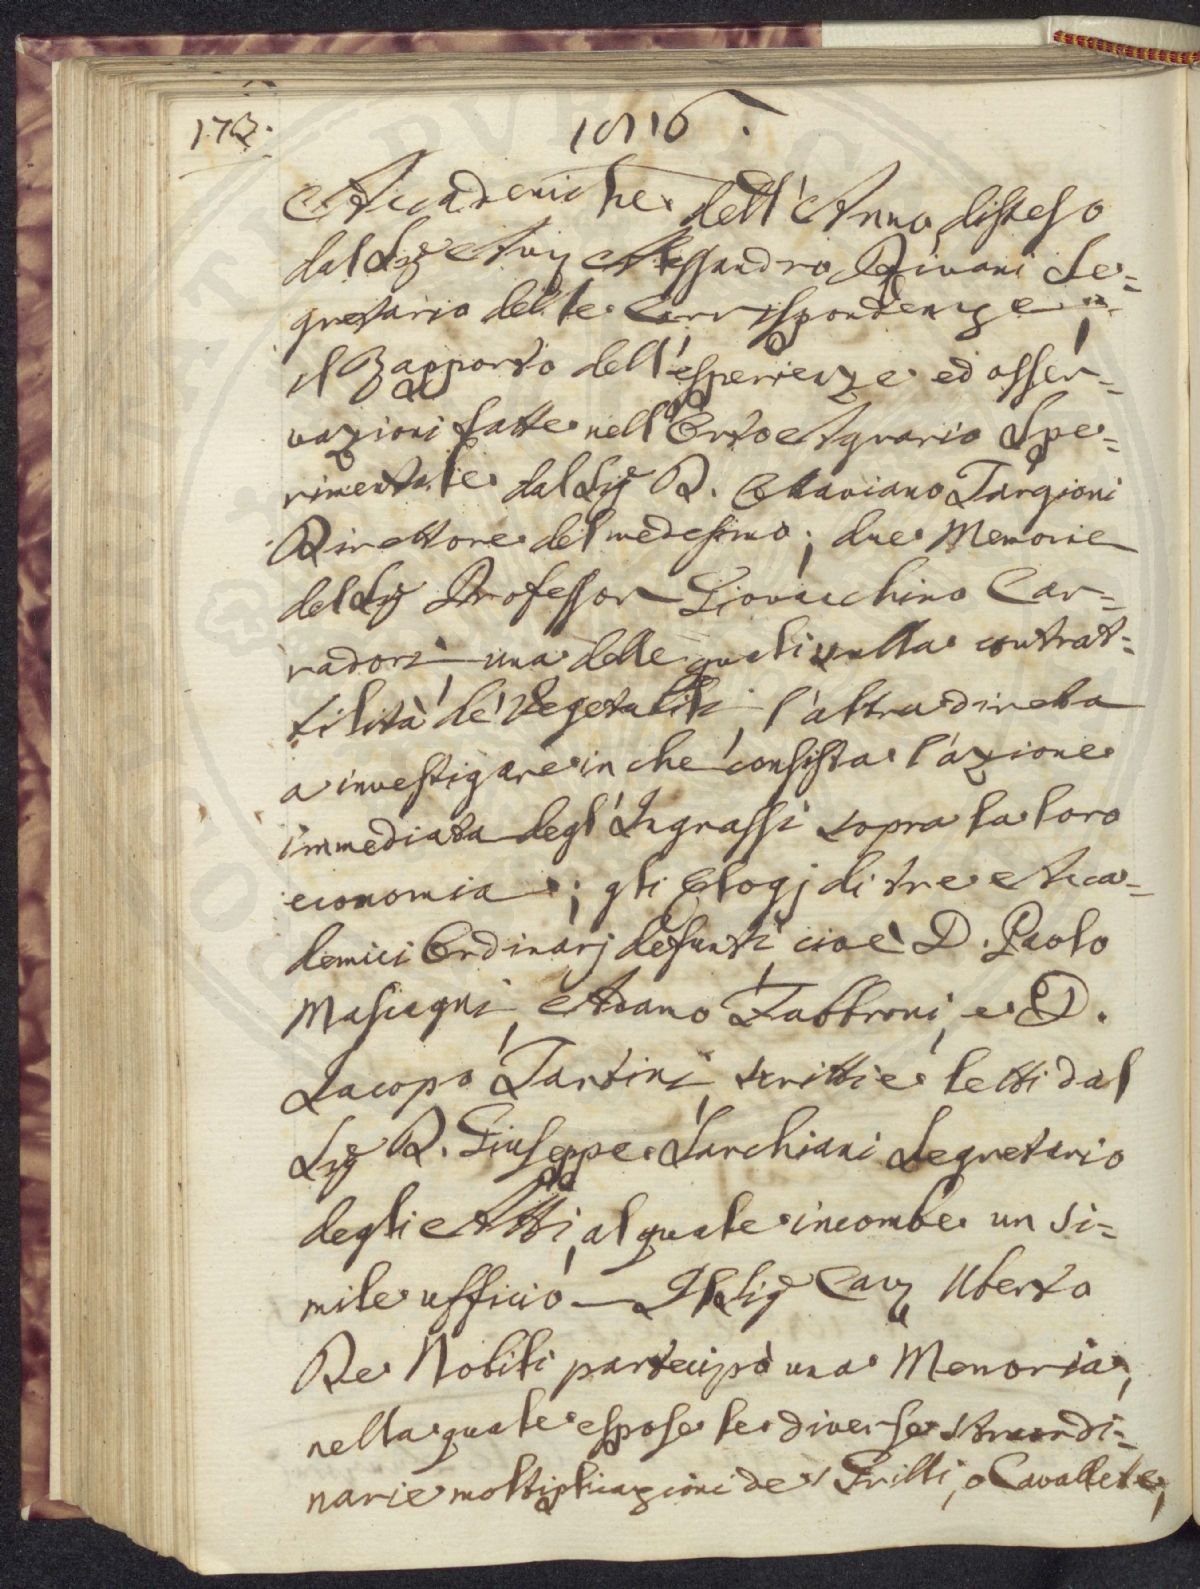 172.
1816.
Accademiche dell'Anno disteso
dal Sig.e Avv. Alessandro Rivani Se=
gretario delle Corrispondenze;
il Rapporto dell'esperienze ed osser=
vazioni fatte nell'Orto Agrario Spe=
rimentale dal Sig.e D. Ottaviano Targioni
Direttore del medesimo; due Memorie
del Sig.e Professor Giovacchino Car=
radori, una delle quali sulla contrat=
tilità de' Vegetabili, l'altra diretta
a investigare in che consista l'azione
immediata degl'Ingrassi sopra la loro
economia; gli Elogj di tre Acca=
demici Ordinarj defunti, cioè D. Paolo
Mascagni, Adamo Fabbroni, e D.
Jacopo Tartini, scritti e letti dal
Sig.e D. Giuseppe Sarchiani Segretario
degli Atti, al quale incombe un si=
mile ufficio — Il Sig.e Cav. Uberto
De Nobili partecipò una Memoria,
nella quale espose le diverse straordi=
narie moltiplicazioni de' Grilli, o Cavallette,